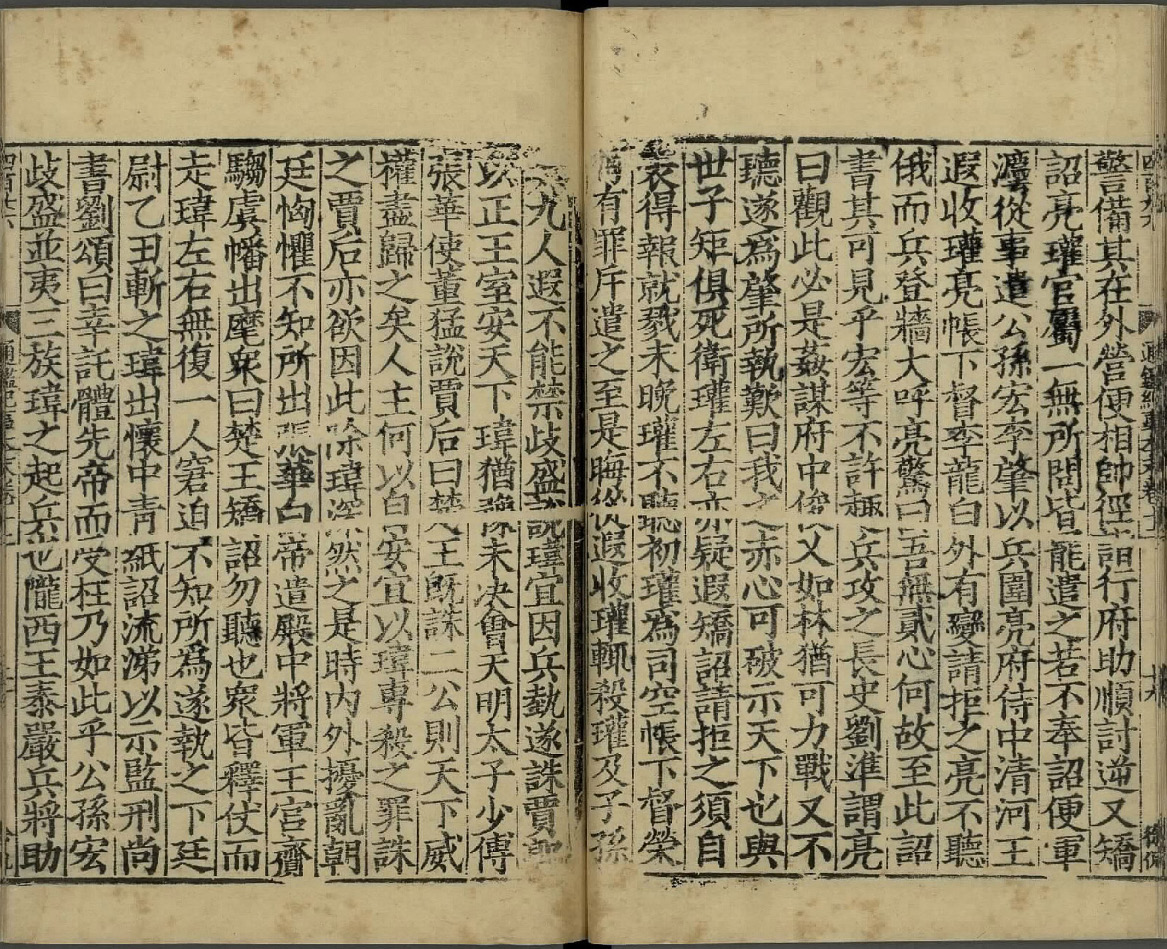 警備其在外營便相帥徑詣行府助順討逆又矯
詔亮瓘官屬一無所問皆罷遣之若不奉詔便軍
灋從事遣公孫宏李肇以兵圍亮府侍中清河王
遐收瓘亮帳下督李龍白外有變請拒之亮不聽
俄而兵登牆大呼亮驚曰吾無貳心何故至此詔
書其可見乎宏等不許趣兵攻之長史劉準謂亮
曰觀此必是姦謀府中俊乂如林猶可力戰又不
聽遂爲肇所執歎曰我之赤心可破示天下也與
世子矩俱死衛瓘左右亦疑遐矯詔請拒之須自
表得報就戮未晚瓘不聽初瓘爲司空帳下督榮
有罪斥遣之至是晦從遐收瓘輒殺瓘及子孫
九人遐不能禁歧盛說瑋宜因兵埶遂誅賈
以正王室安天下瑋猶豫未決會天明太子少傅
張華使董猛說賈后曰楚王旣誅二公則天下威
權盡歸之矣人主何以自安宜以瑋專殺之罪誅
之賈后亦欲因此除瑋深然之是時內外擾亂朝
廷恟懼不知所出張華白帝遣殿中將軍王宮齎
騶虞幡出麾衆曰楚王矯詔勿聽也衆皆釋仗而
走瑋左右無復一人窘迫不知所為遂執之下廷
尉乙丑斬之瑋出懷中青紙詔流涕以示監刑尚
書劉頌曰幸託體先帝而受枉乃如此乎公孫宏
歧盛並夷三族瑋之起兵也隴西王泰嚴兵將助